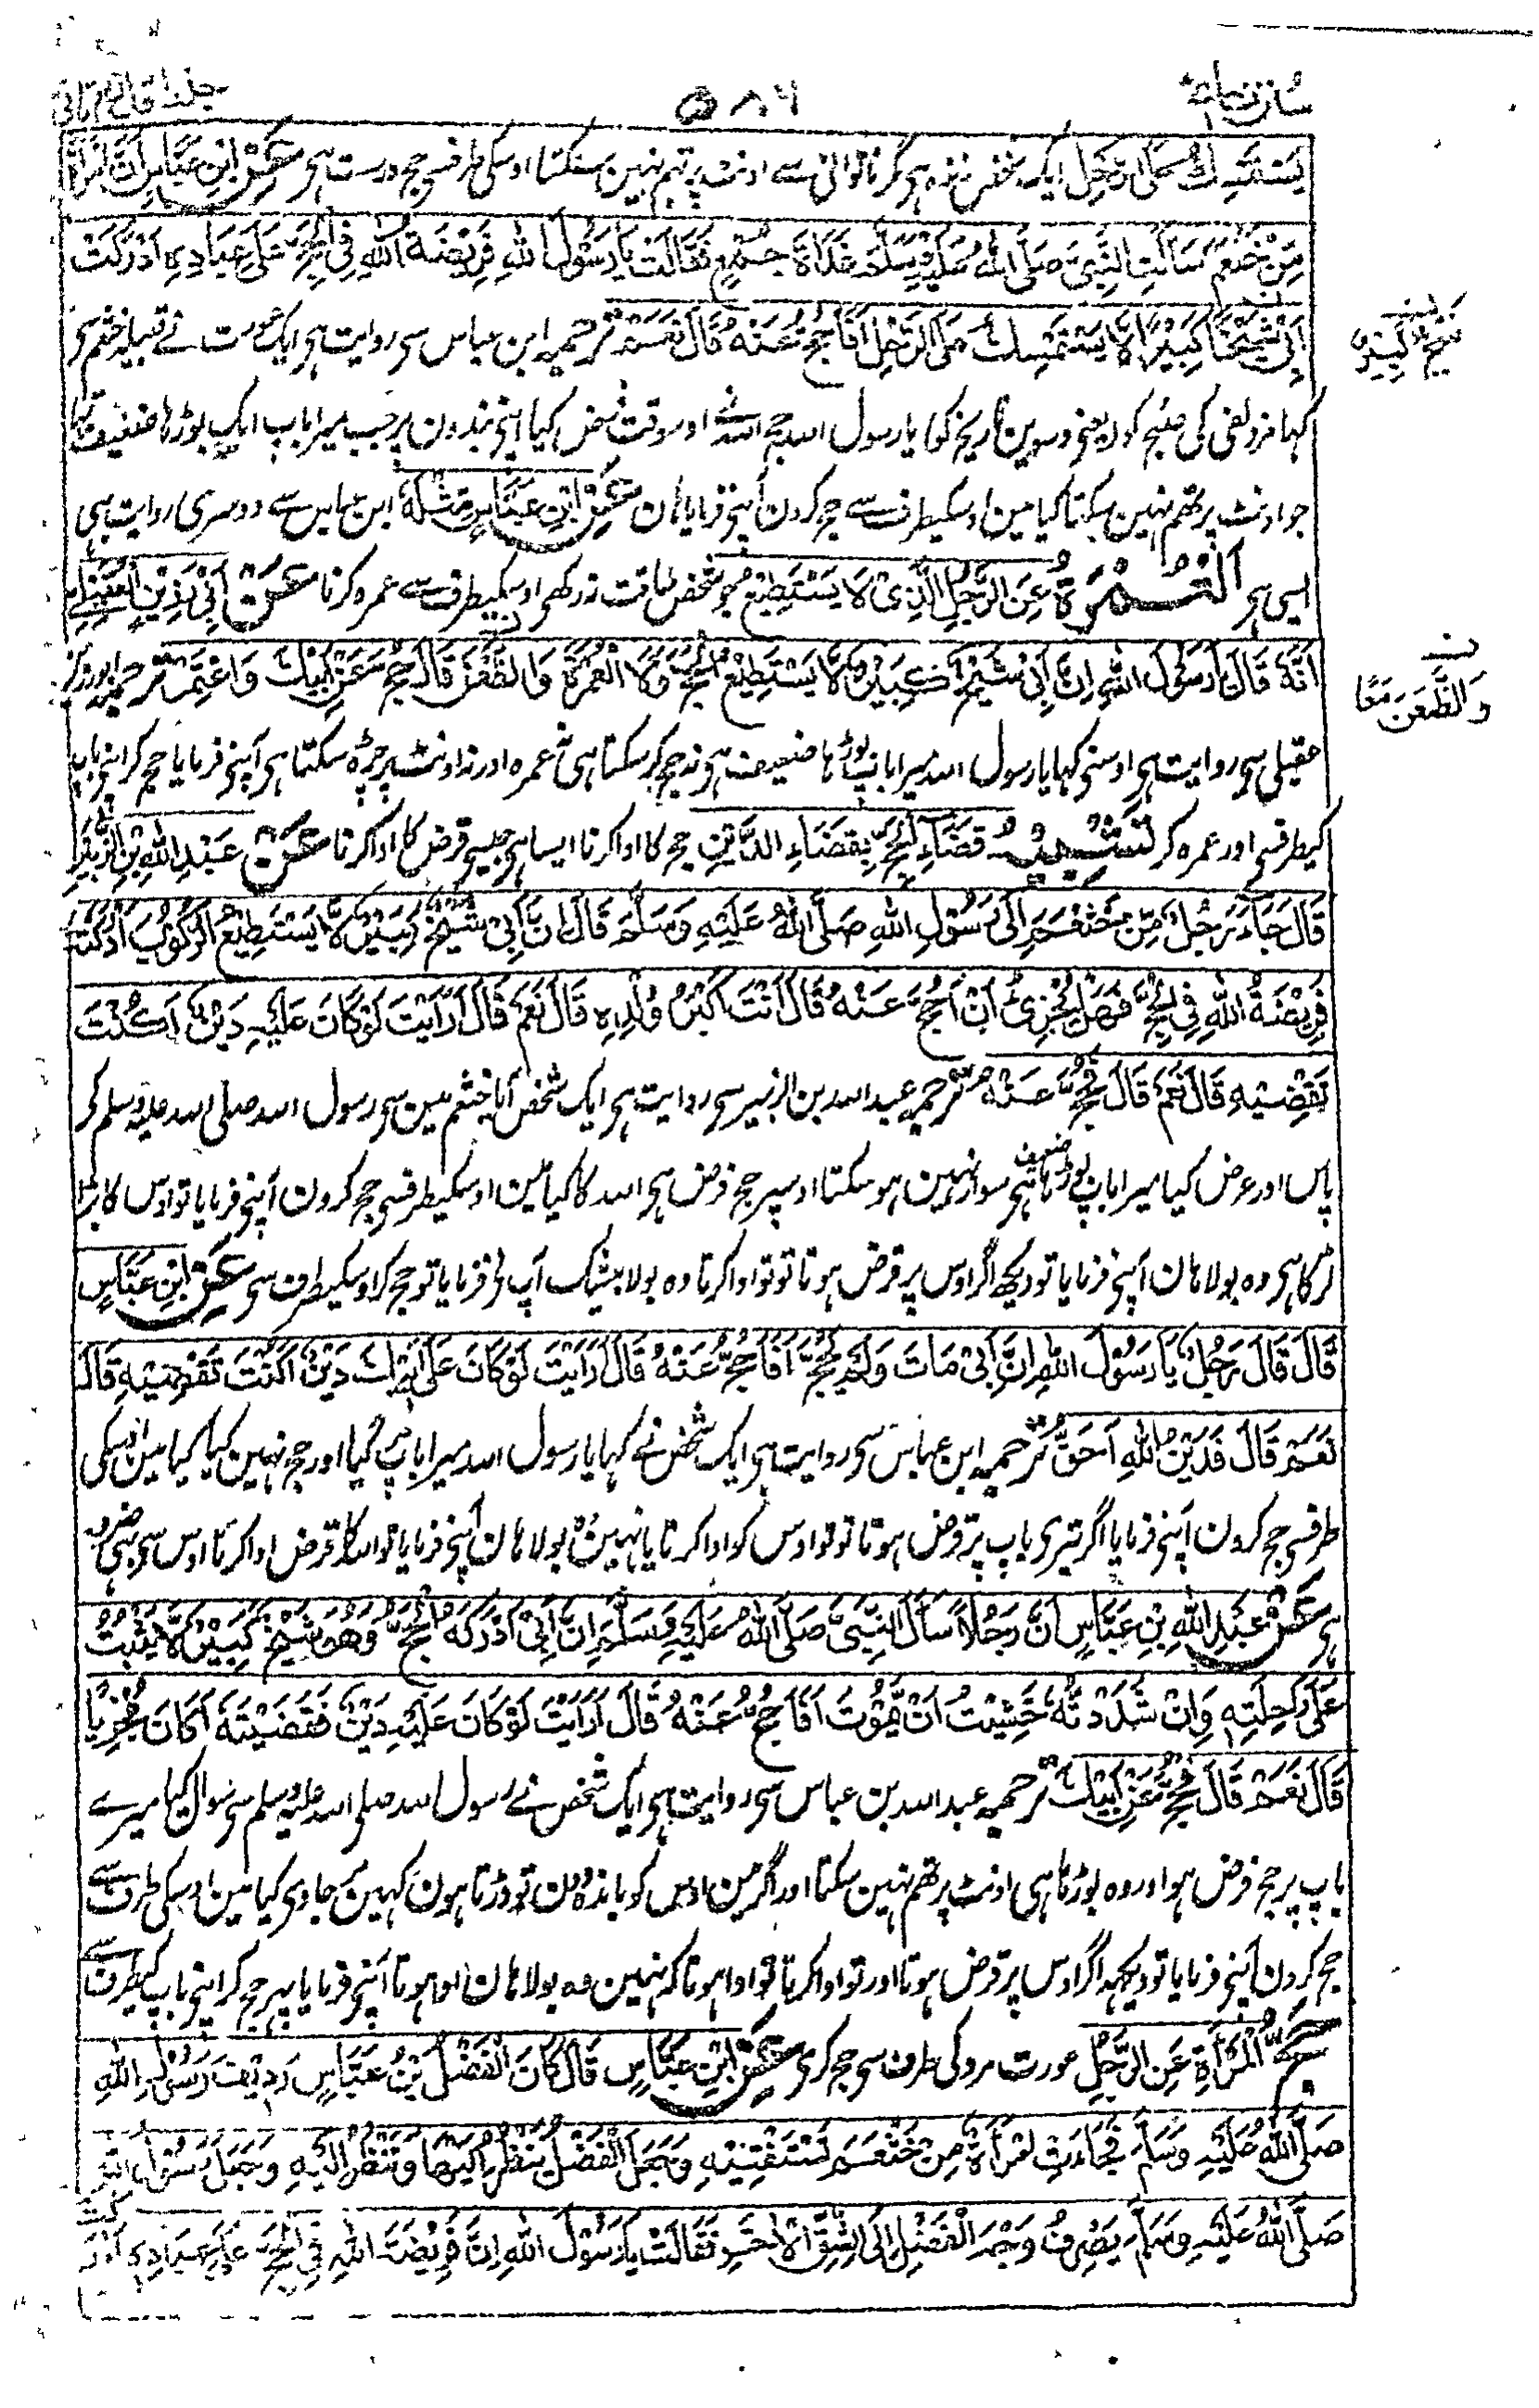 ۵۸۶
يَسْتَمْسِكُ عَلَى الرَّحْلِ ایک شخص زندہ ہی مگر ناتوانی سے اونٹ پر تہم نہین سکتا اوسکی طرف سی حج درست ہی عَنِ ابْنِ عَبَّاسٍ اَنَّ امْرَأَةً
مِّنْ خَثْعَمَ سَأَلَتِ النَّبِيَّ صَلَّى اللهُ عَلَيْهِ وَسَلَّمَ غَدَاةَ جَمْعٍ فَقَالَتْ يَا رَسُوْلَ اللهِ فَرِيْضَةُ اللهِ فِي الْحَجِّ عَلَى عِبَادِهِ اَدْرَكَتْ
اَبِيْ شَيْخًا كَبِيْرًا لَا يَسْتَمْسِكُ عَلَى الرَّحْلِ اَفَاَحُجُّ عَنْهُ قَالَ نَعَمْ ترجمہ ابن عباس سی روایت ہی ایک عورت نے قبیلہ خثعم سی
شَيْخٌ كَبِيْرٌ
کہا مزدلفی کی صبح کو یعنی دسوین تاریخ کو یا رسول اللہ حج اللہ نے اوسوقت فرض کیا اپنی بندون پر جب میرا باپ ایک بوڑہا ضعیف تہا
جو اونٹ پر تھم نہین سکتا کیا مین اوسکیطرف سے حج کرون آپنی فرمایا ہان عَنِ ابْنِ عَبَّاسٍ مِثْلَهُ ابن عباس سے دوسری روایت بہی
ایسی ہی اَلْعُمْرَةُ عَنِ الرَّجُلِ الَّذِىْ لَا يَسْتَطِيْعُ جو شخص طاقت نہ رکھی اوسکیطرف سے عمرہ کرنا عَنْ اَبِىْ رَزِيْنٍ الْعُقَيْلِيِّ
اَنَّهُ قَالَ يَا رَسُوْلَ اللهِ اِنَّ اَبِىْ شَيْخٌ كَبِيْرٌ لَا يَسْتَطِيْعُ الْحَجَّ وَلَا الْعُمْرَةَ وَالظَّعْنَ قَالَ حُجَّ عَنْ اَبِيْكَ وَاعْتَمِرْ ترجمہ ابو رزین
وَالظَّعَنَ مَعًا
عقیلی سی روایت ہی اوسنی کہا یا رسول اللہ میرا باپ بوڑہا ضعیف ہی نہ حج کر سکتا ہی نہ عمرہ اور نہ اونٹ پر چڑہ سکتا ہی آپنی فرمایا حج کر اپنی باپ
کیطرفسی اور عمرہ کر تَشْبِيْهُ قَضَاءِ الْحَجِّ بِقَضَاءِ الدَّيْنِ حج کا ادا کرنا ایسا ہی جیسی قرض کا ادا کرنا عَنْ عَبْدِ اللهِ بْنِ الزُّبَيْرِ
قَالَ جَاءَ رَجُلٌ مِّنْ خَثْعَمَ اِلَى رَسُوْلِ اللهِ صَلَّى اللهُ عَلَيْهِ وَسَلَّمَ قَالَ اِنَّ اَبِىْ شَيْخٌ كَبِيْرٌ لَّا يَسْتَطِيْعُ الرُّكُوْبَ اَدْرَكَتْهُ
فَرِيْضَةُ اللهِ فِي الْحَجِّ فَهَلْ يُجْزِئُ اَنْ اَحُجَّ عَنْهُ قَالَ اَنْتَ اَكْبَرُ وُلْدِهِ قَالَ نَعَمْ قَالَ اَرَاَيْتَ لَوْ كَانَ عَلَيْهِ دَيْنٌ اَكُنْتَ
تَقْضِيْهِ قَالَ نَعَمْ قَالَ حُجَّ عَنْهُ ترجمہ عبداللہ بن الزبیر سی روایت ہی ایک شخص آیا خثعم مین سی رسول اللہ صلی اللہ علیہ وسلم کی
پاس اور عرض کیا میرا باپ بوڑہا ضعیف ہی سوار نہین ہو سکتا اوسپر حج فرض ہی اللہ کا کیا مین اوسکیطرفسی حج کرون آپنی فرمایا تو اوس کا بڑا
لڑکا ہی وہ بولا ہان آپنی فرمایا تو دیکھ اگر اوس پر قرض ہوتا تو تو ادا کرتا وہ بولا بیشک آپ نی فرمایا تو حج کر اوسکیطرف سی عَنِ ابْنِ عَبَّاسٍ
قَالَ قَالَ رَجُلٌ يَا رَسُوْلَ اللهِ اِنَّ اَبِىْ مَاتَ وَلَمْ يَحُجَّ اَفَاَحُجُّ عَنْهُ قَالَ اَرَاَيْتَ لَوْ كَانَ عَلَى اَبِيْكَ دَيْنٌ اَكُنْتَ تَقْضِيْهِ قَالَ
نَعَمْ قَالَ فَدَيْنُ اللهِ اَحَقُّ ترجمہ ابن عباس سی روایت ہی ایک شخص نے کہا یا رسول اللہ میرا باپ مر گیا اور حج نہین کیا کیا مین اوسکی
طرفسی حج کرون آپنی فرمایا اگر تیری باپ پر قرض ہوتا تو تو اوس کو ادا کرتا یا نہین بولا ہان آپنی فرمایا تو اللہ کا قرض ادا کرنا اوس سی بہی ضرور
ہی عَنْ عَبْدِ اللهِ بْنِ عَبَّاسٍ اَنَّ رَجُلًا سَأَلَ النَّبِىَّ صَلَّى اللهُ عَلَيْهِ وَسَلَّمَ اِنَّ اَبِىْ اَدْرَكَهُ الْحَجُّ وَهُوَ شَيْخٌ كَبِيْرٌ لَّا يَثْبُتُ
عَلَى رَاحِلَتِهِ وَاِنْ شَدَدْتُّهُ خَشِيْتُ اَنْ يَّمُوْتَ اَفَاَحُجُّ عَنْهُ قَالَ اَرَاَيْتَ لَوْ كَانَ عَلَيْهِ دَيْنٌ فَقَضَيْتَهُ اَكَانَ مُجْزِيًا
قَالَ نَعَمْ قَالَ فَحُجَّ عَنْ اَبِيْكَ ترجمہ عبداللہ بن عباس سی روایت ہی ایک شخص نے رسول اللہ صلی اللہ علیہ وسلم سی سوال کیا میرے
باپ پر حج فرض ہوا اور وہ بوڑہا ہی اونٹ پر تھم نہین سکتا اور اگر مین اوس کو باندہون تو ڈرتا ہون کہین مر جاوی کیا مین اوسکی طرف سے
حج کرون آپنی فرمایا تو دیکھ اگر اوس پر قرض ہوتا اور تو ادا کرتا تو ادا ہوتا کہ نہین وہ بولا ہان ادا ہوتا آپنی فرمایا پہر حج کر اپنی باپ کیطرف سے
حَجُّ الْمَرْأَةِ عَنِ الرَّجُلِ عورت مرد کی طرف سی حج کری عَنِ ابْنِ عَبَّاسٍ قَالَ كَانَ الْفَضْلُ بْنُ عَبَّاسٍ رَدِيْفَ رَسُوْلِ اللهِ
صَلَّى اللهُ عَلَيْهِ وَسَلَّمَ فَجَاءَتِ امْرَأَةٌ مِنْ خَثْعَمَ تَسْتَفْتِيْهِ وَجَعَلَ الْفَضْلُ يَنْظُرُ اِلَيْهَا وَتَنْظُرُ اِلَيْهِ وَجَعَلَ رَسُوْلُ اللهِ
صَلَّى اللهُ عَلَيْهِ وَسَلَّمَ يَصْرِفُ وَجْهَ الْفَضْلِ اِلَى الشِّقِّ الْاٰخَرِ فَقَالَتْ يَا رَسُوْلَ اللهِ اِنَّ فَرِيْضَةَ اللهِ فِى الْحَجِّ عَلَى عِبَادِهِ اَدْرَكَتْ